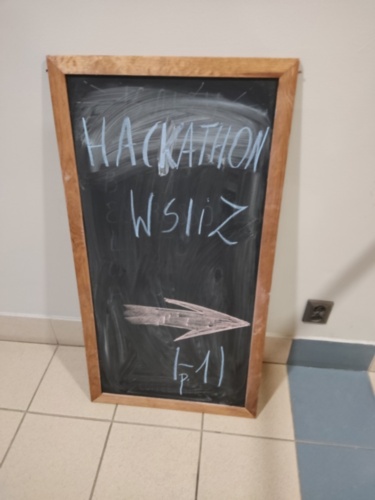 HACKATHON
WSIiZ
(-p1)